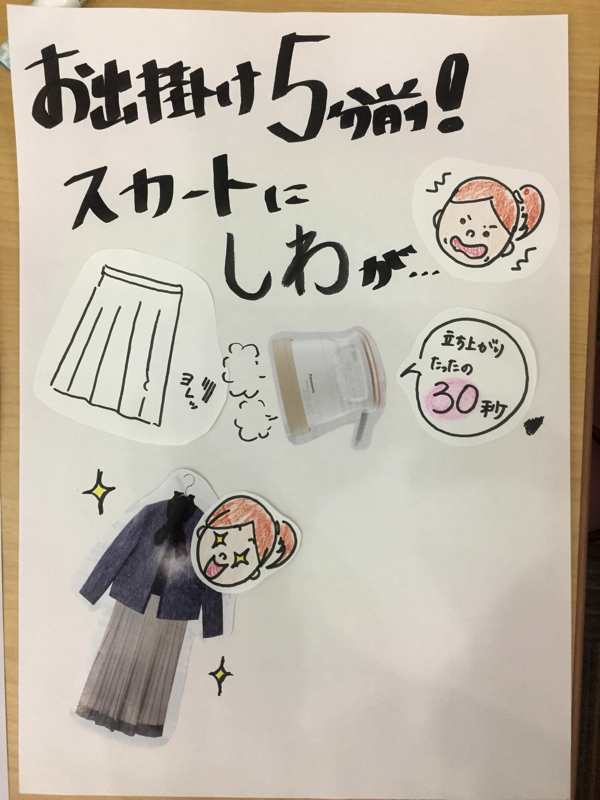 お出掛け5分前!
スカートに
しわが…
ヨレッ
Panasonic
立ち上がり
たったの
30秒